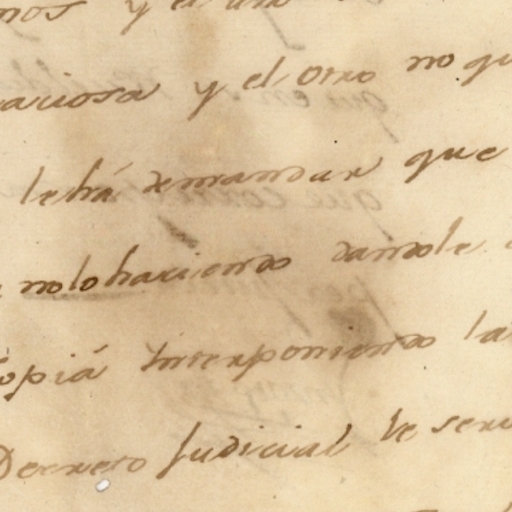 y el otro no
lehá demandar que
nolo haciendo dandole
copiá Interponiendo la
Decreto Judicial le